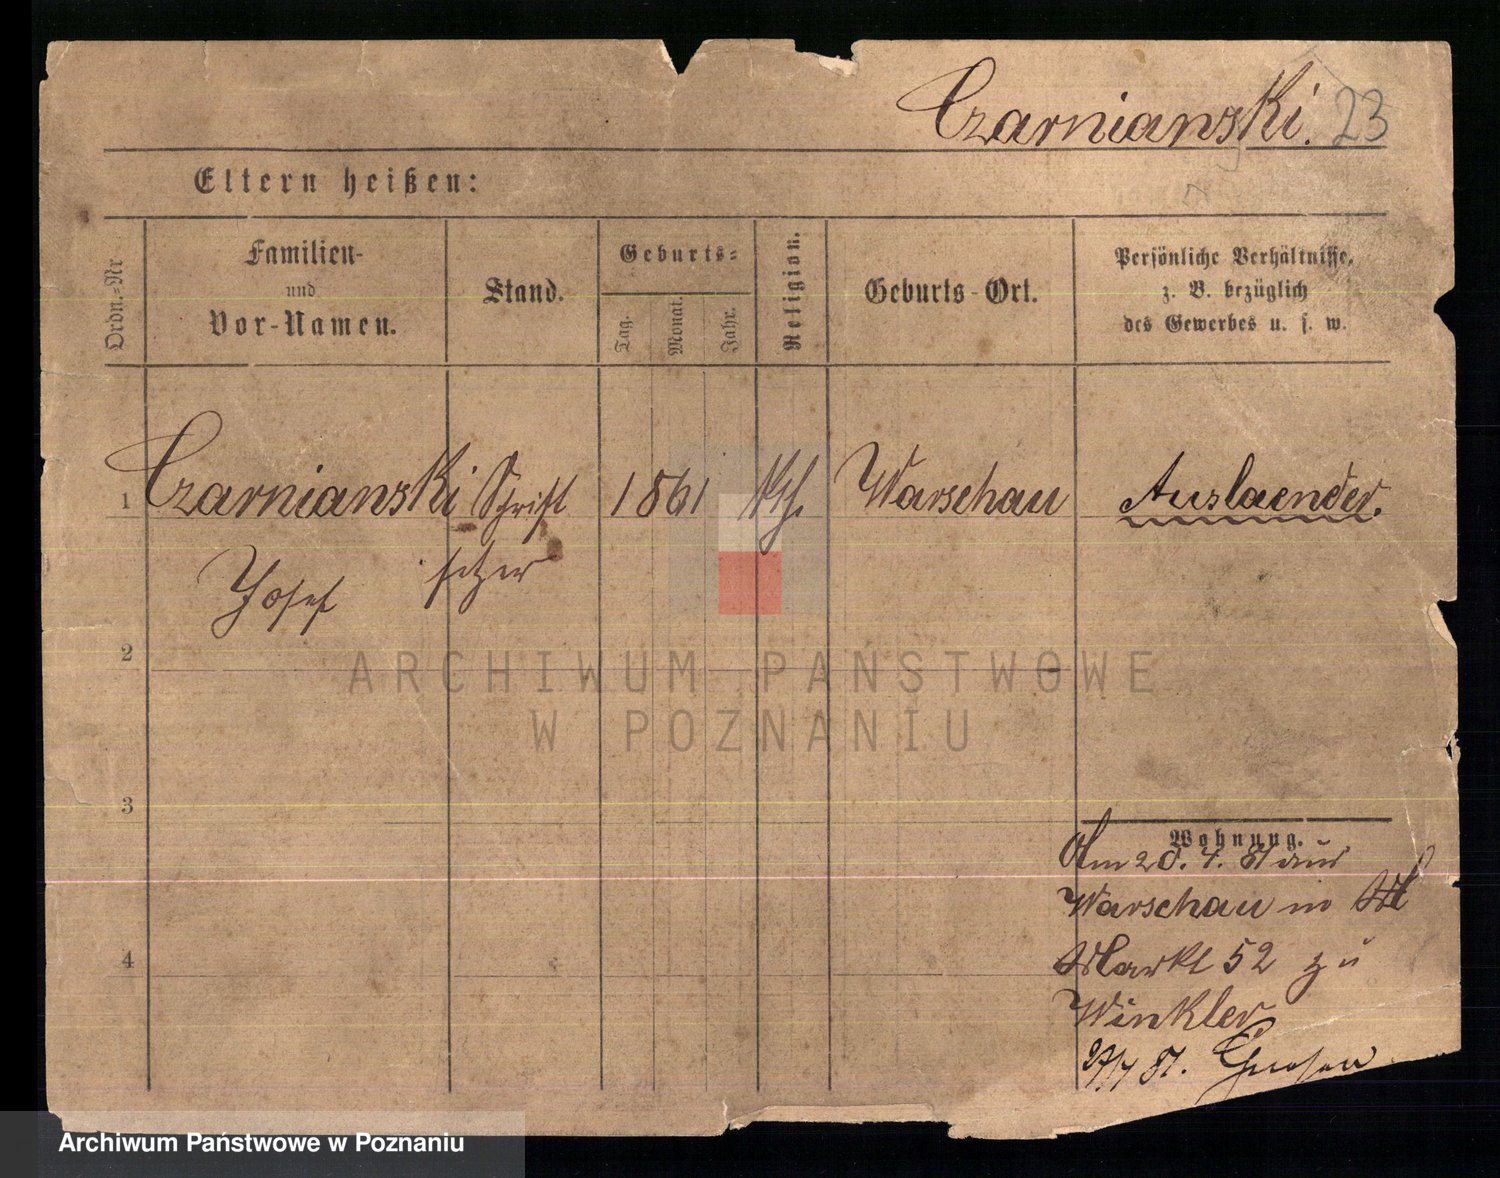 Czarnianski. 23
Eltern heißen:
Ordn.-Nr
Familien-
und
Vor-Namen.
Stand.
Geburts-
Tag.
Monat.
Jahr.
Religion.
Geburts-Ort.
Persönliche Verhältnisse,
z. B. bezüglich
des Gewerbes u. s. w.
1 Czarnianski Schrift 1861 kth. Warschau Auslaender.
Josef setzer
2
3
4
Wohnung.
Am 20. 4. 81 aus
Warschau in
Markt 52 zu
Winkler
81. Gnesen
ARCHIWUM PAŃSTWOWE
W POZNANIU
Archiwum Państwowe w Poznaniu